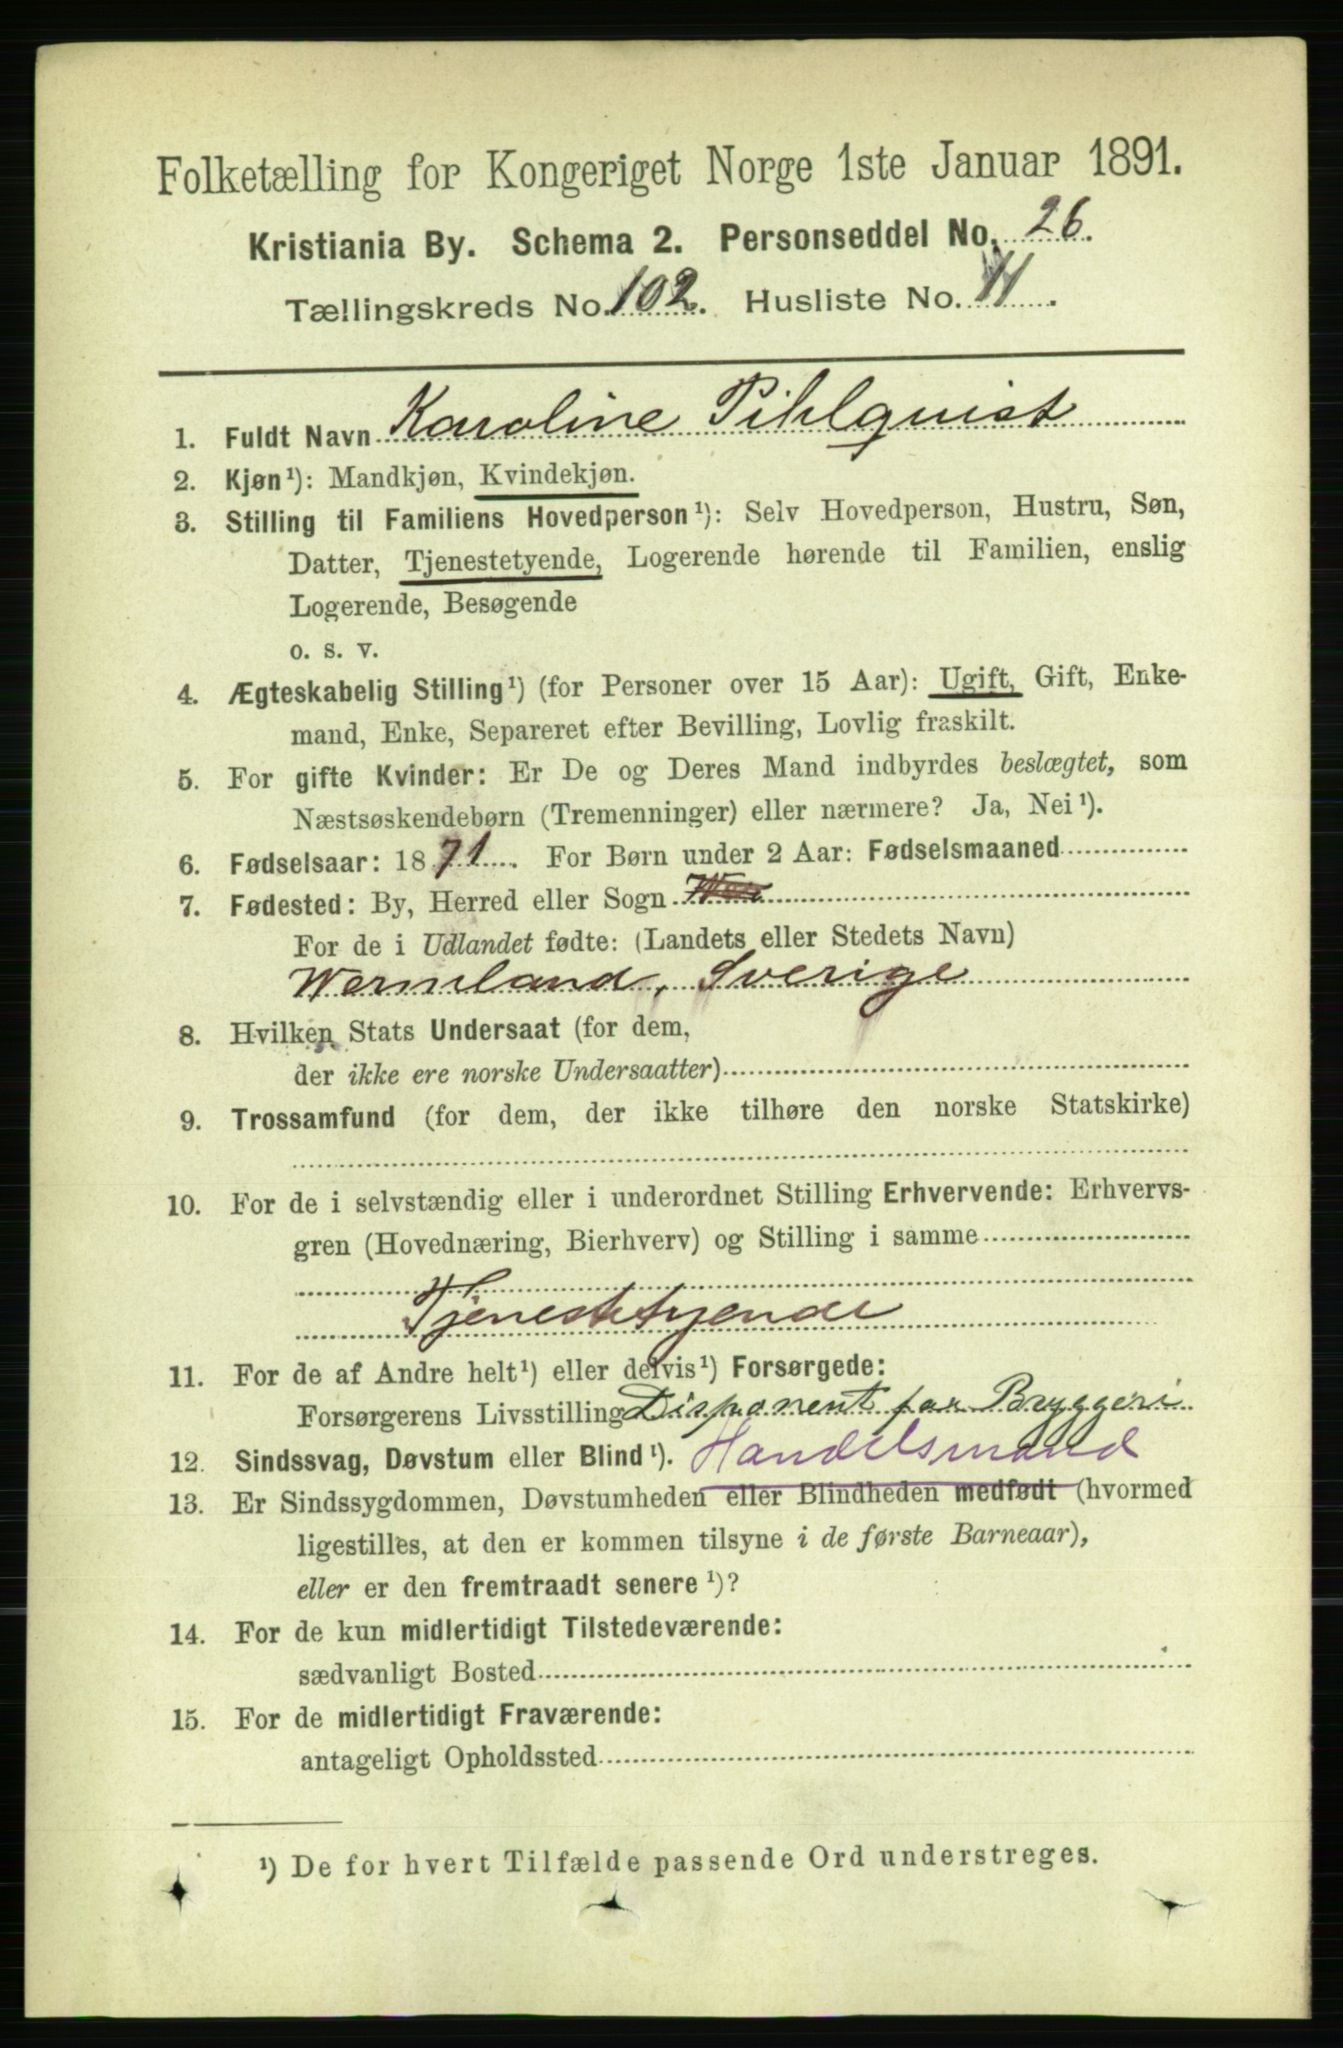 Folketælling for Kongeriget Norge 1ste Januar 1891.
Kristiania By. Schema 2. Personseddel No. 26.
Tællingskreds No. 102. Husliste No. 11.
1. Fuldt Navn Karoline Pihlquist
2. Kjøn¹): Mandkjøn, Kvindekjøn.
3. Stilling til Familiens Hovedperson¹): Selv Hovedperson, Hustru, Søn,
Datter, Tjenestetyende, Logerende hørende til Familien, enslig
Logerende, Besøgende
o. s. v.
4. Ægteskabelig Stilling¹) (for Personer over 15 Aar): Ugift, Gift, Enke-
mand, Enke, Separeret efter Bevilling, Lovlig fraskilt.
5. For gifte Kvinder: Er De og Deres Mand indbyrdes beslægtet, som
Næstsøskendebørn (Tremenninger) eller nærmere? Ja, Nei¹).
6. Fødselsaar: 1871. For Børn under 2 Aar: Fødselsmaaned
7. Fødested: By, Herred eller Sogn
For de i Udlandet fødte: (Landets eller Stedets Navn)
Wermland, Sverige
8. Hvilken Stats Undersaat (for dem,
der ikke ere norske Undersaatter)
9. Trossamfund (for dem, der ikke tilhøre den norske Statskirke)
10. For de i selvstændig eller i underordnet Stilling Erhvervende: Erhvervs-
gren (Hovednæring, Bierhverv) og Stilling i samme
Tjenestetyende
11. For de af Andre helt¹) eller delvis¹) Forsørgede:
Forsørgerens Livsstilling Disponent for Bryggeri
12. Sindssvag, Døvstum eller Blind¹). Handelsmand
13. Er Sindssygdommen, Døvstumheden eller Blindheden medfødt (hvormed
ligestilles, at den er kommen tilsyne i de første Barneaar),
eller er den fremtraadt senere¹)?
14. For de kun midlertidigt Tilstedeværende:
sædvanligt Bosted
15. For de midlertidigt Fraværende:
antageligt Opholdssted
¹) De for hvert Tilfælde passende Ord understreges.